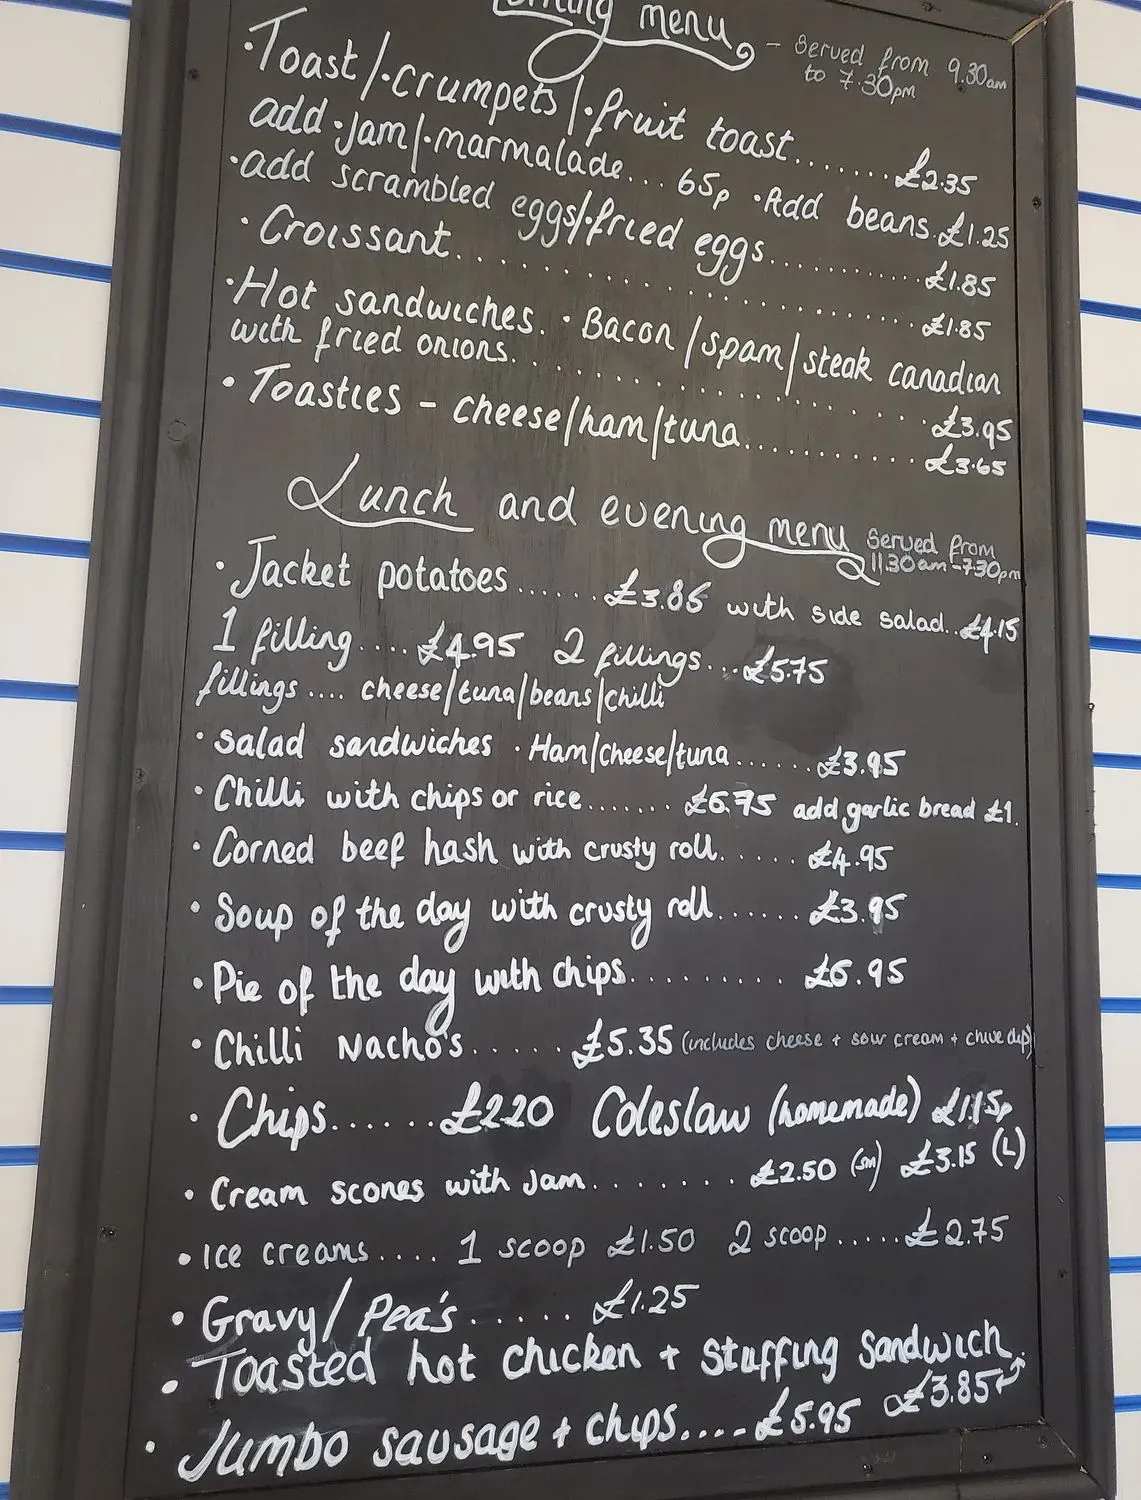 menu - Served from 9.30am
to 7.30pm
· Toast/·crumpets/·fruit toast....... £2.35
add ·jam/·marmalade... 65p ·Add beans.£1.25
·add scrambled eggs/·fried eggs........... £1.85
· Croissant................... £1.85
·Hot sandwiches. · Bacon/spam/steak canadian
with fried onions................ £3.95
· Toasties - cheese/ham/tuna........... £3.65
Lunch and evening menu Served from
11.30am-7.30pm
· Jacket potatoes...... £3.85 with side salad..£4.15
1 filling.... £4.95 2 fillings...£5.75
fillings.... cheese/tuna/beans/chilli
· salad sandwiches · Ham/cheese/tuna...... £3.95
· Chilli with chips or rice....... £6.75 add garlic bread £1.
· Corned beef hash with crusty roll...... £4.95
· Soup of the day with crusty roll...... £3.95
· Pie of the day with chips.......... £6.95
· Chilli Nacho's...... £5.35 (includes cheese + sour cream + chive dip)
· Chips...... £2.20 Coleslaw (homemade) £1.15p
· Cream scones with Jam....... £2.50 (sm) £3.15 (L)
· Ice creams.... 1 scoop £1.50 2 scoop..... £2.75
· Gravy/ Pea's...... £1.25
· Toasted hot chicken + Stuffing Sandwich.
£3.85
· Jumbo sausage + chips.... £5.95